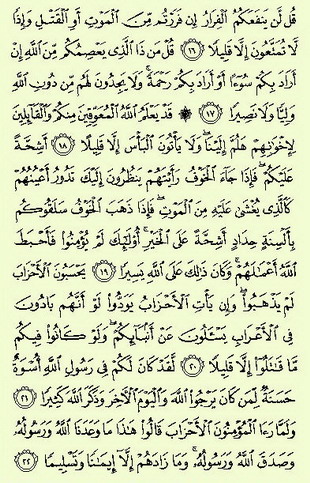 قُل لَّن يَنفَعَكُمُ ٱلْفِرَارُ إِن فَرَرْتُم مِّنَ ٱلْمَوْتِ أَوِ ٱلْقَتْلِ وَإِذًا
لَّا تُمَتَّعُونَ إِلَّا قَلِيلًا ١٦ قُلْ مَن ذَا ٱلَّذِى يَعْصِمُكُم مِّنَ ٱللَّهِ إِنْ
أَرَادَ بِكُمْ سُوٓءًا أَوْ أَرَادَ بِكُمْ رَحْمَةً ۚ وَلَا يَجِدُونَ لَهُم مِّن دُونِ ٱللَّهِ
وَلِيًّا وَلَا نَصِيرًا ١٧ ۞ قَدْ يَعْلَمُ ٱللَّهُ ٱلْمُعَوِّقِينَ مِنكُمْ وَٱلْقَآئِلِينَ
لِإِخْوَٰنِهِمْ هَلُمَّ إِلَيْنَا ۖ وَلَا يَأْتُونَ ٱلْبَأْسَ إِلَّا قَلِيلًا ١٨ أَشِحَّةً
عَلَيْكُمْ ۖ فَإِذَا جَآءَ ٱلْخَوْفُ رَأَيْتَهُمْ يَنظُرُونَ إِلَيْكَ تَدُورُ أَعْيُنُهُمْ
كَٱلَّذِى يُغْشَىٰ عَلَيْهِ مِنَ ٱلْمَوْتِ ۖ فَإِذَا ذَهَبَ ٱلْخَوْفُ سَلَقُوكُم
بِأَلْسِنَةٍ حِدَادٍ أَشِحَّةً عَلَى ٱلْخَيْرِ ۚ أُو۟لَٰٓئِكَ لَمْ يُؤْمِنُوا۟ فَأَحْبَطَ
ٱللَّهُ أَعْمَٰلَهُمْ ۚ وَكَانَ ذَٰلِكَ عَلَى ٱللَّهِ يَسِيرًا ١٩ يَحْسَبُونَ ٱلْأَحْزَابَ
لَمْ يَذْهَبُوا۟ ۖ وَإِن يَأْتِ ٱلْأَحْزَابُ يَوَدُّوا۟ لَوْ أَنَّهُم بَادُونَ
فِى ٱلْأَعْرَابِ يَسْـَٔلُونَ عَنْ أَنۢبَآئِكُمْ ۖ وَلَوْ كَانُوا۟ فِيكُم
مَّا قَٰتَلُوٓا۟ إِلَّا قَلِيلًا ٢٠ لَّقَدْ كَانَ لَكُمْ فِى رَسُولِ ٱللَّهِ أُسْوَةٌ
حَسَنَةٌ لِّمَن كَانَ يَرْجُوا۟ ٱللَّهَ وَٱلْيَوْمَ ٱلْـَٔاخِرَ وَذَكَرَ ٱللَّهَ كَثِيرًا ٢١
وَلَمَّا رَءَا ٱلْمُؤْمِنُونَ ٱلْأَحْزَابَ قَالُوا۟ هَٰذَا مَا وَعَدَنَا ٱللَّهُ وَرَسُولُهُۥ
وَصَدَقَ ٱللَّهُ وَرَسُولُهُۥ ۚ وَمَا زَادَهُمْ إِلَّآ إِيمَٰنًا وَتَسْلِيمًا ٢٢